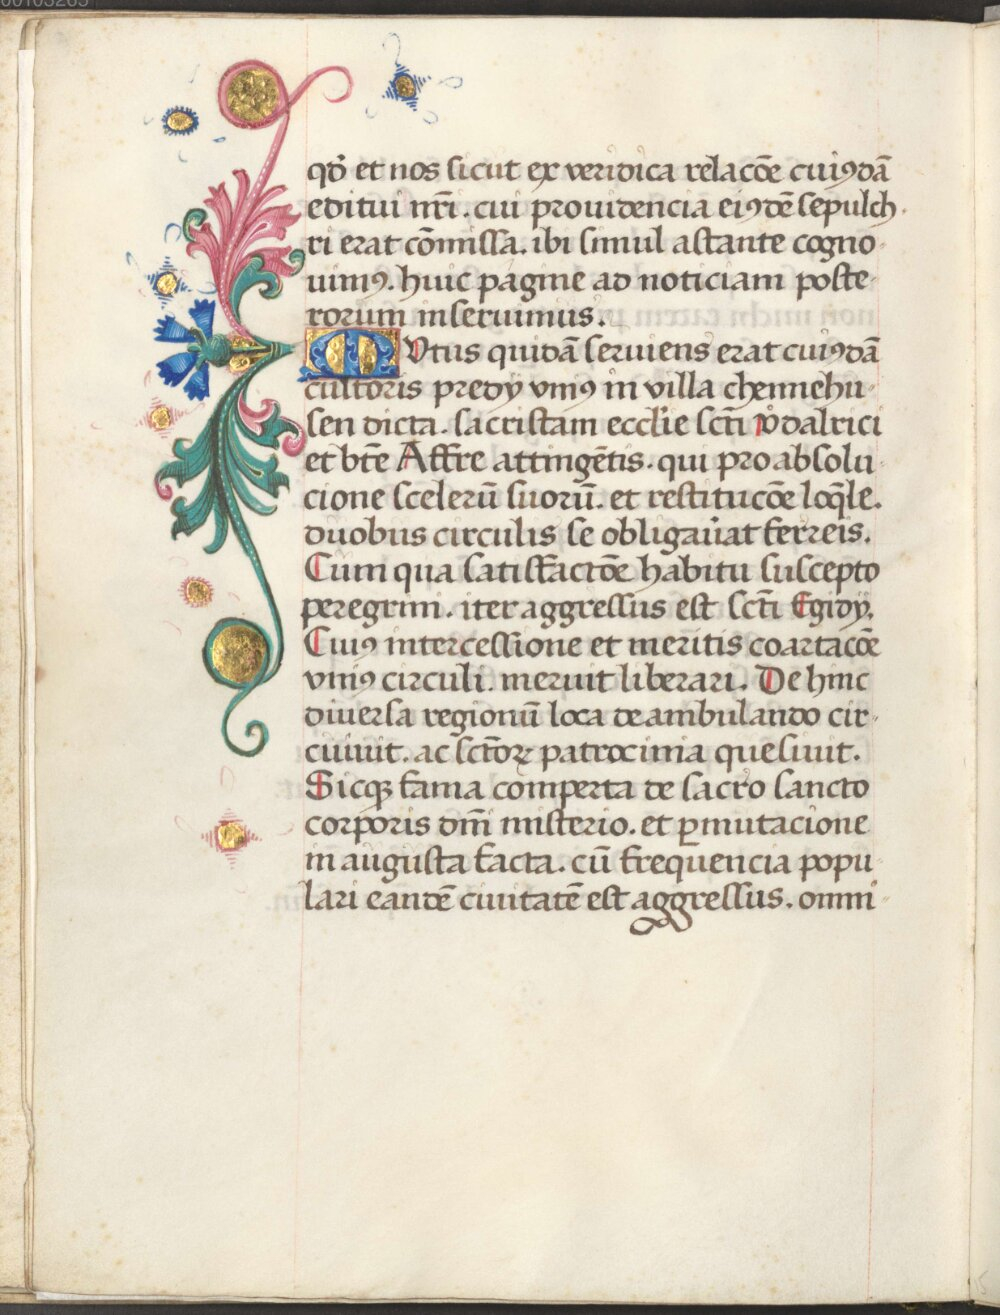 00103265
qđ et nos sicut ex veridica relacōe cuiꝰdā
editui nrī. cui prouidencia eiꝰdē sepulch
ri erat cōmissa. ibi simul astante cogno
uimꝰ. huic pagine ad noticiam poste
rorum inseruimus.
MVtus quidā seruiens erat cuiꝰdā
cultoris predÿ vniꝰ in villa chennehu
sen dicta. sacristam ecclīe scti vodalrici
et btē Affre attingētis. qui pro absolu
cione scelerū suorū. et restitucōe loq̄le.
duobus circulis se obligaūat ferreis.
Cum qua satisfactōe habitu suscepto
peregrini. iter aggressus est scti Egidÿ.
Cuiꝰ intercessione et meritis coartacōe
vniꝰ circuli. meruit liberari. De hinc
diuersa regionū loca deambulando cir
cuiuit. ac sctōꝝ patrocinia quesiuit.
Sicqꝫ fama comperta de sacro sancto
corporis dn̄i misterio. et ꝑmutacione
in augusta facta. cū frequencia popu
lari eandē ciuitatē est aggressus. omni